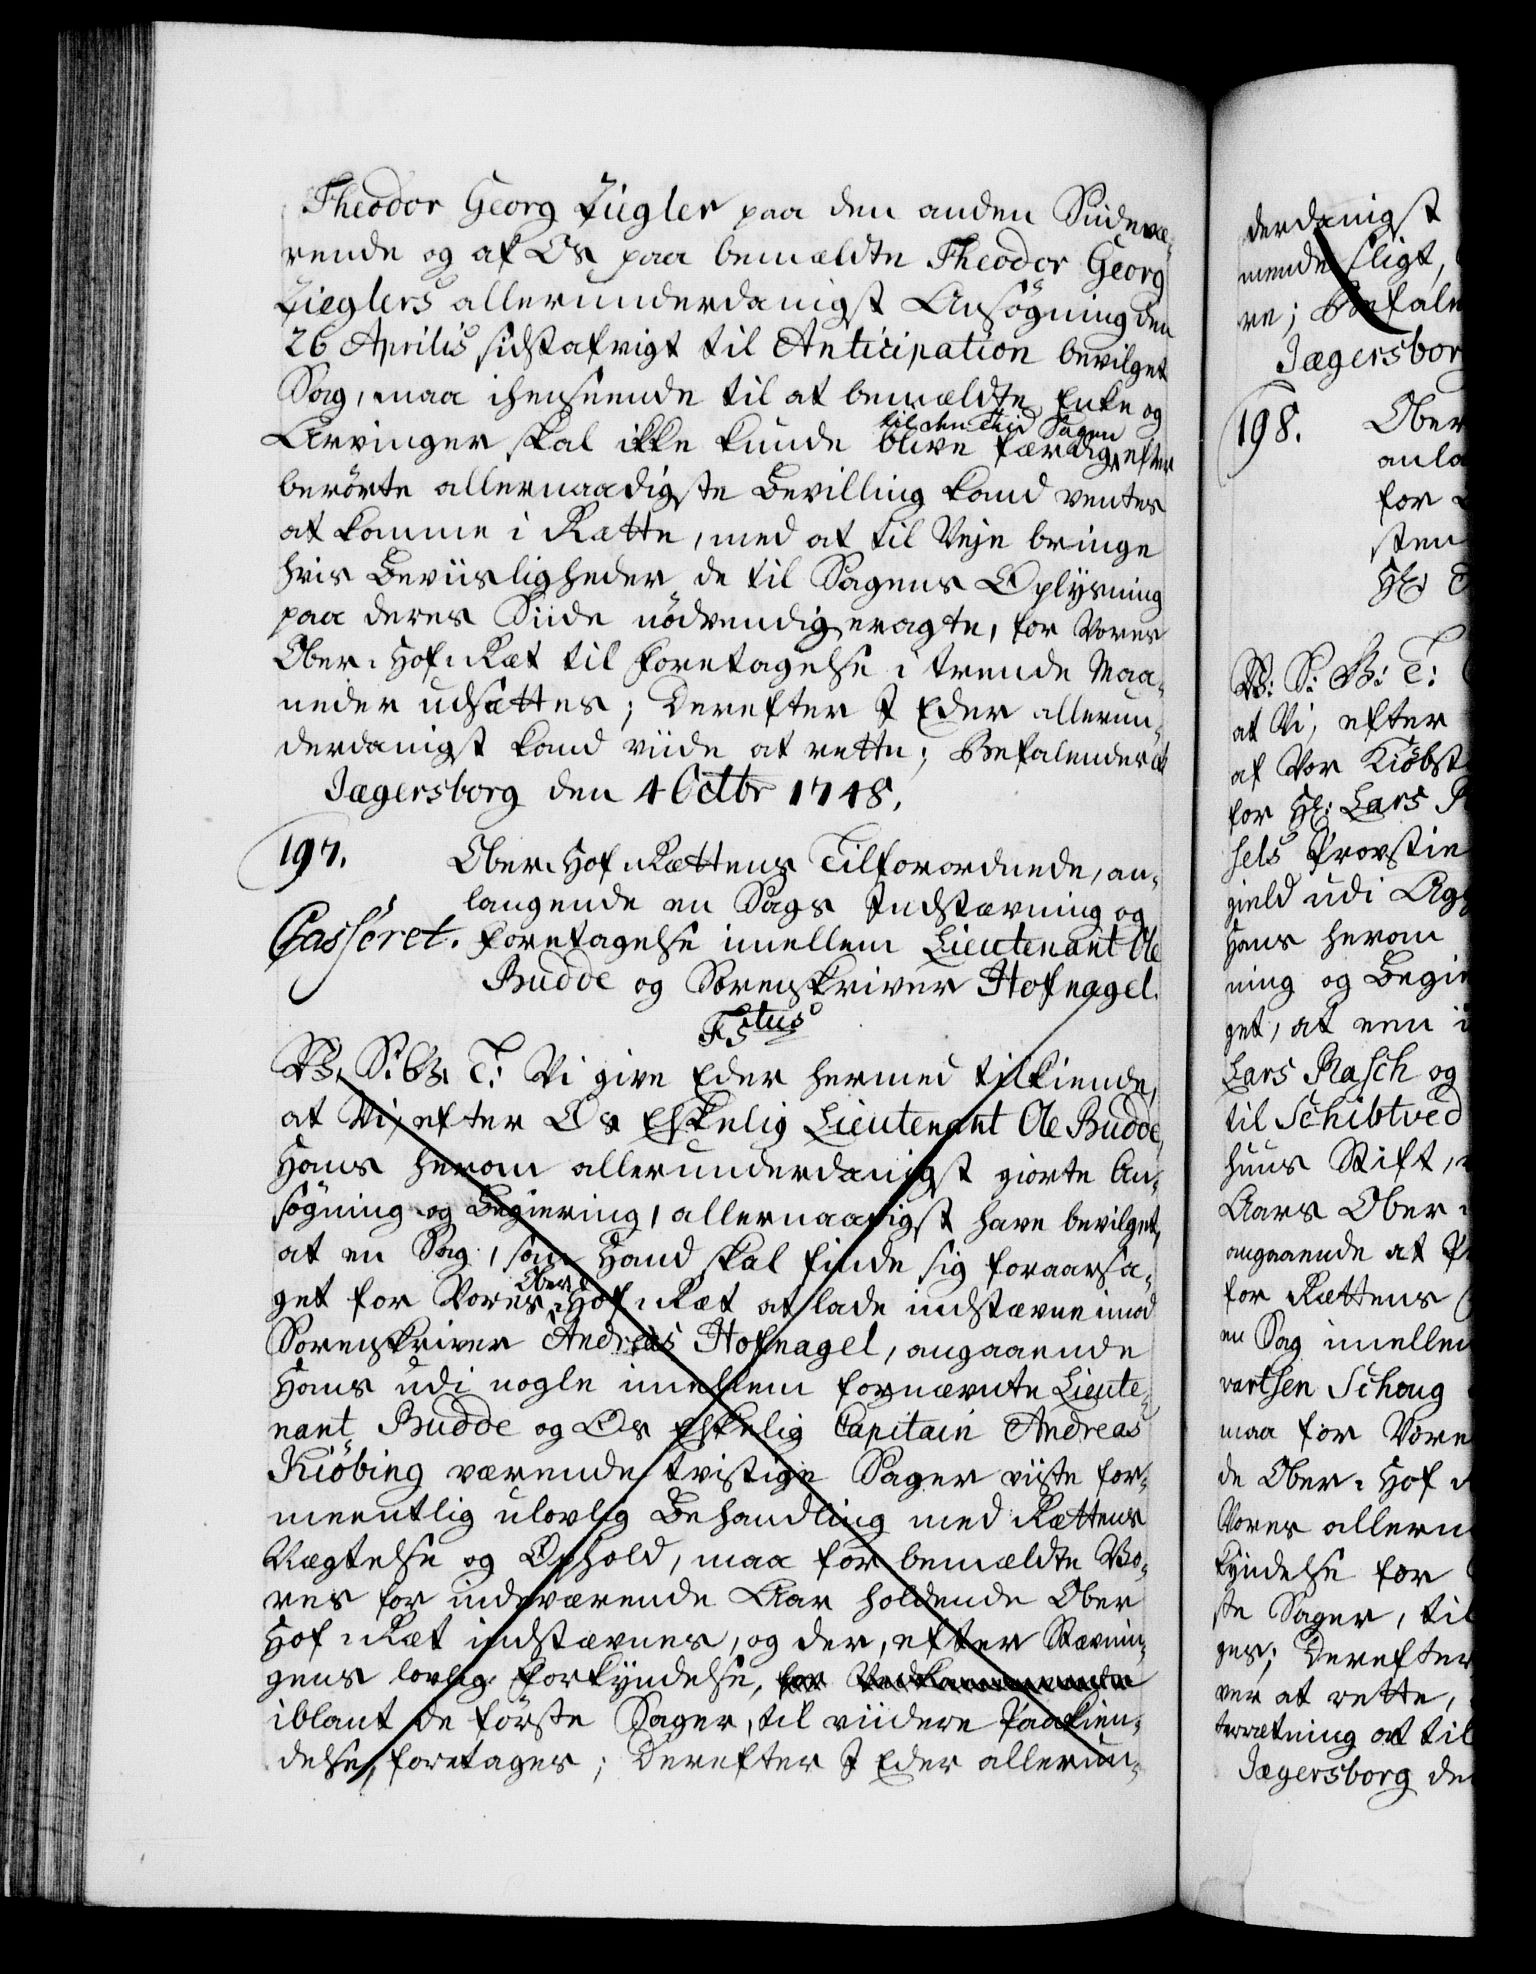 Theodor Georg Ziegler paa den anden Siide væ-
rende og af Os paa bemældte Theodor Georg
Zieglers allerunderdanigst Ansøgning den
26 Aprilis sidstafvigt til Anticipation bevilget
Sag, maa ihenseende til at bemældte Enke og
til den Tiid Sagen
Arvinger skal ikke kunde blive færdig, efter
berörte allernaadigste Bevilling kand ventes
at komme i Rætte, med at til Veje bringe
hvis Beviisligheder de til Sagens Oplysning
paa deres Siide nödvendig eragte, for Vores
Ober-Hof-Ræt til Foretagelse i trende Maa-
neder udsættes; Derefter I Eder allerun-
derdanigst kand viide at rette; Befalendes etc
Jægersborg den 4 Octbr 1748.
197. Ober-Hof-Rættens Tilforordnede, an-
langende en Sags Indstævning og
Casseret. Foretagelse imellem Lieutenant Ole
Budde og Sorenskriver Hofnagel.
F 5tus
V. S. G. T: Vi give Eder hermed tilkiende,
at Vi, efter Os Elskelig Lieutenant Ole Budde,
Hans herom allerunderdanigst giorte An-
søgning og Begiering, allernaadigst have bevilget,
at en Sag, som Hand skal finde sig foraarsa-
Ober
get for Vores Hof-Ræt at lade indstævne imod
Sorenskriver Andreas Hofnagel, angaaende
Hans udi nogle imellem fornævnte Lieute-
nant Budde og Os Elskelig Capitain Andreas
Kiöbing værende tvistige Sager viiste for-
meentlig ulovlig Behandling med Rættens
Nægtelse og Ophold, maa for bemældte Vo-
res for indeværende Aar holdende Ober
Hof-Ræt indstævnes, og der, efter Stævnin-
gens lovlig Forkyndelse, for Vedkommende
iblant de første Sager, til viidere Paakien-
delse, foretages; Derefter I Eder allerun-
derdanigst
mende sligt,
re; Befale
Jægersbor
198. Ober
anla
for
sten
Hr:
V: S: G: T:
at Vi, efter
af Vor Kiöbst
for Hr: Lars R
sels Provstie
gield udi Agg
Hans herom
ning og Begie
get, at een i
Lars Rasch og
til Schibtved
huus Stift,
Aars Ober
angaaende at
for Rættens
en Sag imellem
vartsen Schoug
maa for Vore
de Ober-Hof
Vores allern
kyndelse for
ste Sager, til
ges; Derefter
ver at rette,
terrætning at til
Jægersborg de